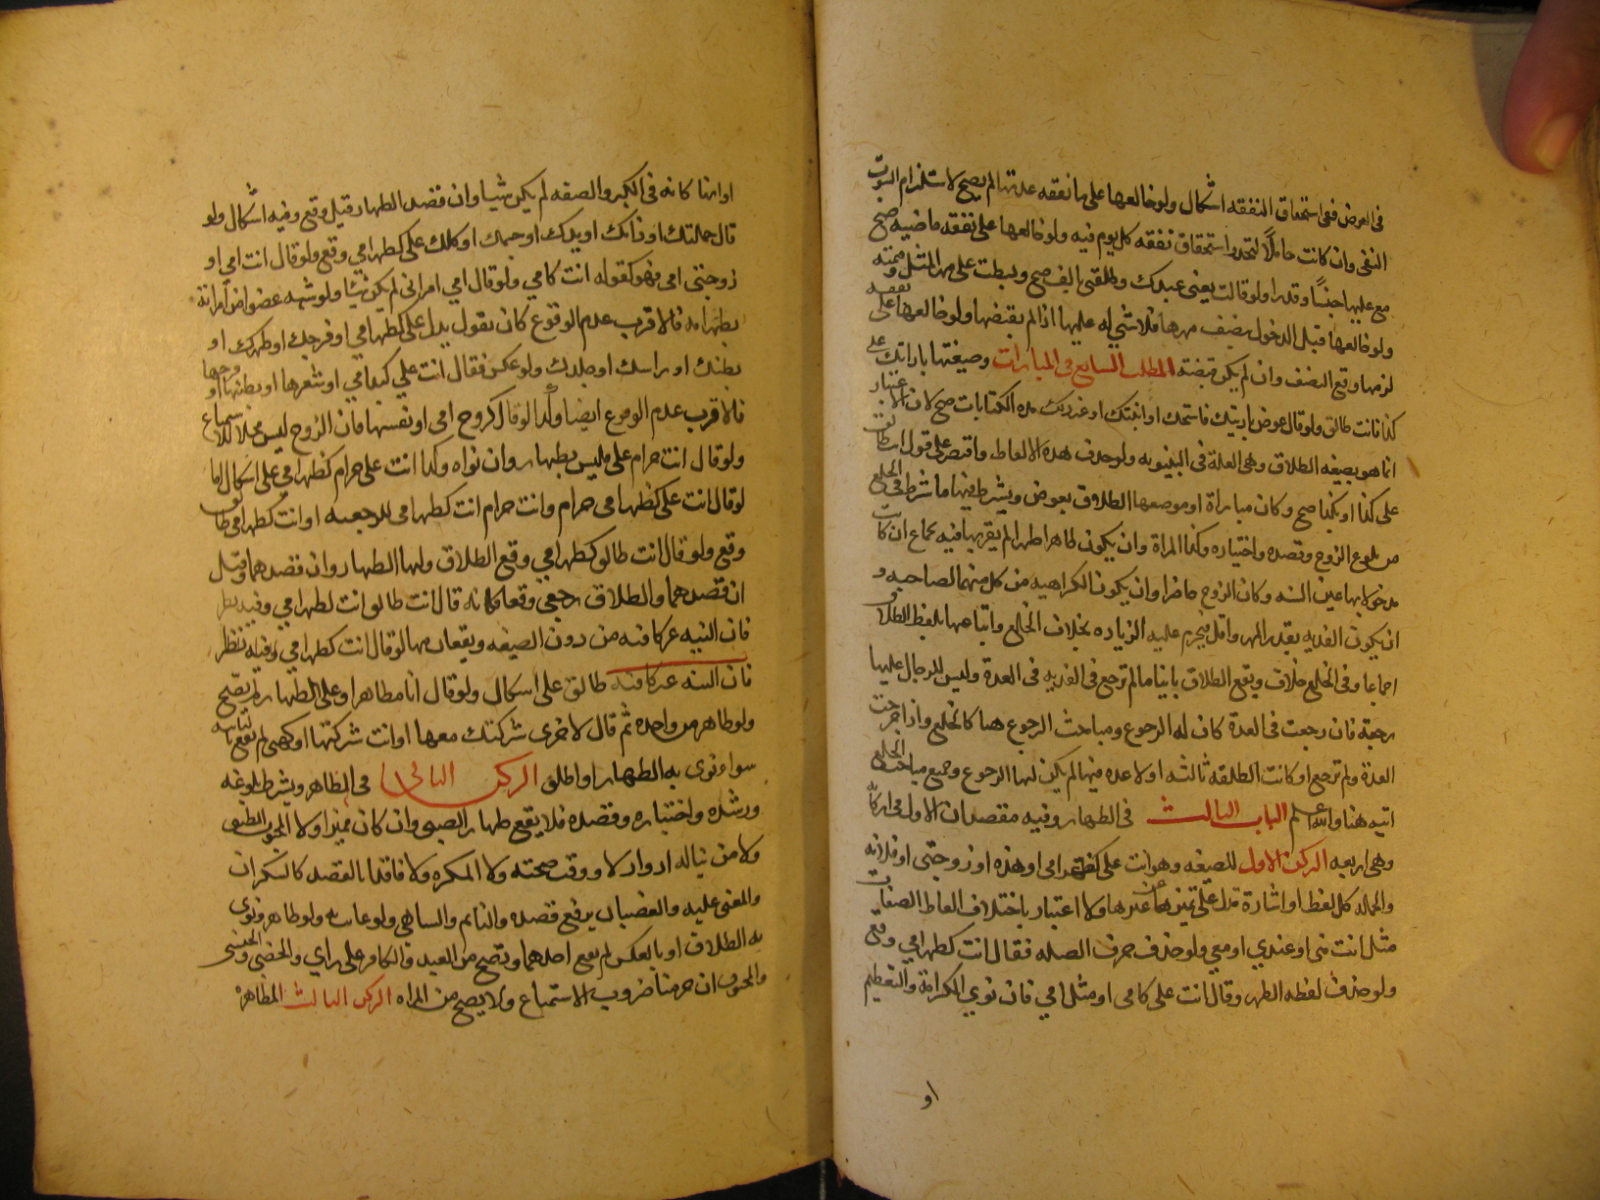 في العوض ففي استحقاق النفقه اشكال ولو خالعها على ما نفقه عدتها لم يصح لاستلزام الثبوت
النفي وان كانت حاملًا لتجدد استحقاق نفقه كل يوم فيه ولو خالعها على نفقه ماضيه صح
مع عليها جنسًا وقدرا ولو قالت بعني عبدك وطلقني بالف صح وبسطت على مهر المثل وقيمته
ولو خالعها قبل الدخول بنصف مهرها فلا شي له عليها اذا لم يقبضها ولو خالعها على نفقه
لزمها وقع النصف وان لم يكن قبضته المطلب السابع في المبارات وصيغتها باراتك على
كذا فانت طالق ولو قال عوض باريتك فاسختك او ابنتك او غير ذلك من الكنايات صح لان الاعتبار
انما هو بصيغه الطلاق وهي العلة في البينونه ولو حذف هذه الالفاظ واقتصر على قول انت طالق
على كذا او بكذا صح وكان مباراة اذ موضوعها الطلاق بعوض ويشترط فيها ما شرط في الخلع
من بلوغ الزوج وقصده واختياره وكذا المراة وان يكون طاهرا طهرا لم يقربها فيه بجماع ان كان
مدخولا بها غير ائسه وكان الزوج حاضرا وان يكون الكراهيه من كل منهما لصاحبه و
ان يكون الفديه بقدر المهر او اقل فيحرم عليه الزياده بخلاف الخلع واتباعها بلفظ الطلاق
اجماعا وفي الخلع خلاف ويقع الطلاق باينا ما لم ترجع في الفديه في العدة وليس للرجال عليها
رجعة فان رجعت في العدة كان له الرجوع ومباحث الرجوع هنا كالخلع واذا خرجت
العدة ولم ترجع او كانت الطلقه ثالثه او لا عده فيها لم يكن لها الرجوع وجميع مباحث الخلع
اتيه هنا والله اعلم الباب الثالث في الظهار وفيه مقصدان الاول في اركانه
وهي اربعه الركن الاول للصيغه وهو انت علي كظهر امي او هذه او زوجتي او فلانه
والجمله كل لفظ او اشارة تدل على تميزها عن غيرها ولا اعتبار باختلاف الفاظ الصفات
مثل انت مني او عندي او معي ولو حذف حرف الصله فقال انت كظهر امي وقع
ولو حذف لفظه الظهر وقال انت علي كامي او مثل امي فان نوى الكرامة والتعظيم
او
او انها كانه في الكبر والصفه لم يكن شيا وان قصد الظهار قيل وقع وفيه اشكال ولو
قال جملتك او ذاتك او بدنك او جسمك او كلك علي كظهر امي وقع ولو قال انت امي او
زوجتي امي فهو كقوله انت كامي ولو قال امي امراتي لم يكن شيا ولو شبه عضوا من امراته
بظهر امه فالاقرب عدم الوقوع كان يقول يدك علي كظهر امي او فرجك او ظهرك او
بطنك او راسك او جلدك ولو عكس فقال انت علي كيد امي او شعرها او بطنها او فرجها
فالاقرب عدم الوقوع ايضا وكذا لو قال كروح امي او نفسها فان الروح ليس محلا للاستمتاع
ولو قال انت حرام علي فليس بظهار وان نواه وكذا انت علي حرام كظهر امي على اشكال اما
لو قال انت علي كظهر امي حرام وانت حرام انت كظهر امي للرجعيه او انت كظهر امي طالق
وقع ولو قال انت طالق كظهر امي وقع الطلاق ولها الظهار وان قصدهما وقيل
ان قصدهما والطلاق رجعي وقعا فكانه قال انت طالق انت كظهر امي وفيه نظر
فان النيه غير كافيه من دون الصيغه ويقعان معا لو قال انت كظهر امي وفيه نظر
فان النيه غير كافيه طالق على اشكال ولو قال انا مظاهر او علي الظهار لم يصح
ولو ظاهر من واحده ثم قال لاخرى شركتك معها او انت شركتها او كهي لم يقع بالثانيه
سواء نوى به الظهار او اطلق الركن الثاني في المظاهر ويشترط بلوغه
ورشده واختياره وقصده فلا يقع ظهار الصبي وان كان مميزا ولا المجنون المطبق
ولا من يناله ادوارا لا وقت صحته ولا المكره ولا فاقد القصد كالسكران
والمغمى عليه والغضبان يرفع قصده والنايم والساهي ولو ظاهر ونوى
به الطلاق او بالعكس لم يقع احدهما ويصح من العبد والكافر على راي والخصي والخنثى
والمجبوب ان حرمنا ضروب الاستمتاع ولا يصح من المراه الركن الثالث المظاهره